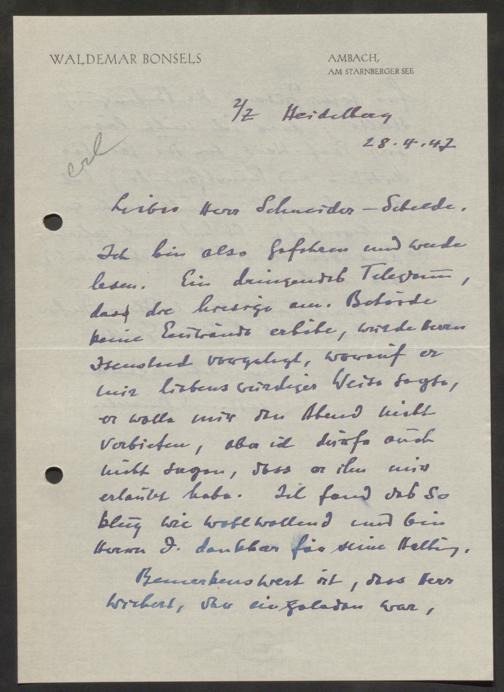 WALDEMAR BONSELS
AMBACH,
AM STARNBERGER SEE
z/Z Heidelberg
28.4.47
erl
Lieber Herr Schneider-Schelde.
Ich bin also gefahren und werde
lesen. Ein dringendes Telegramm,
dass die hiesige am. Behörde
keine Einwände erhübe, wurde Herrn
vorgelegt, worauf er
mir liebenswürdiger Weise sagte,
er wolle mir den Abend nicht
verbieten, aber ich dürfe auch
nicht sagen, dass er ihn mir
erlaubt habe. Ich fand das so
klug wie wohlwollend und bin
Herrn D. dankbar für seine Haltung.
Bemerkenswert ist, dass Herr
Wiechert, der eingeladen war,